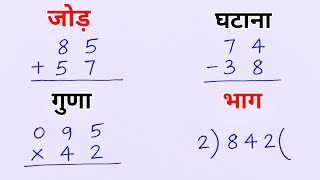 जोड़
8 5
+ 5 7
घटाना
7 4
- 3 8
गुणा
0 9 5
× 4 2
भाग
2 ) 8 4 2 (